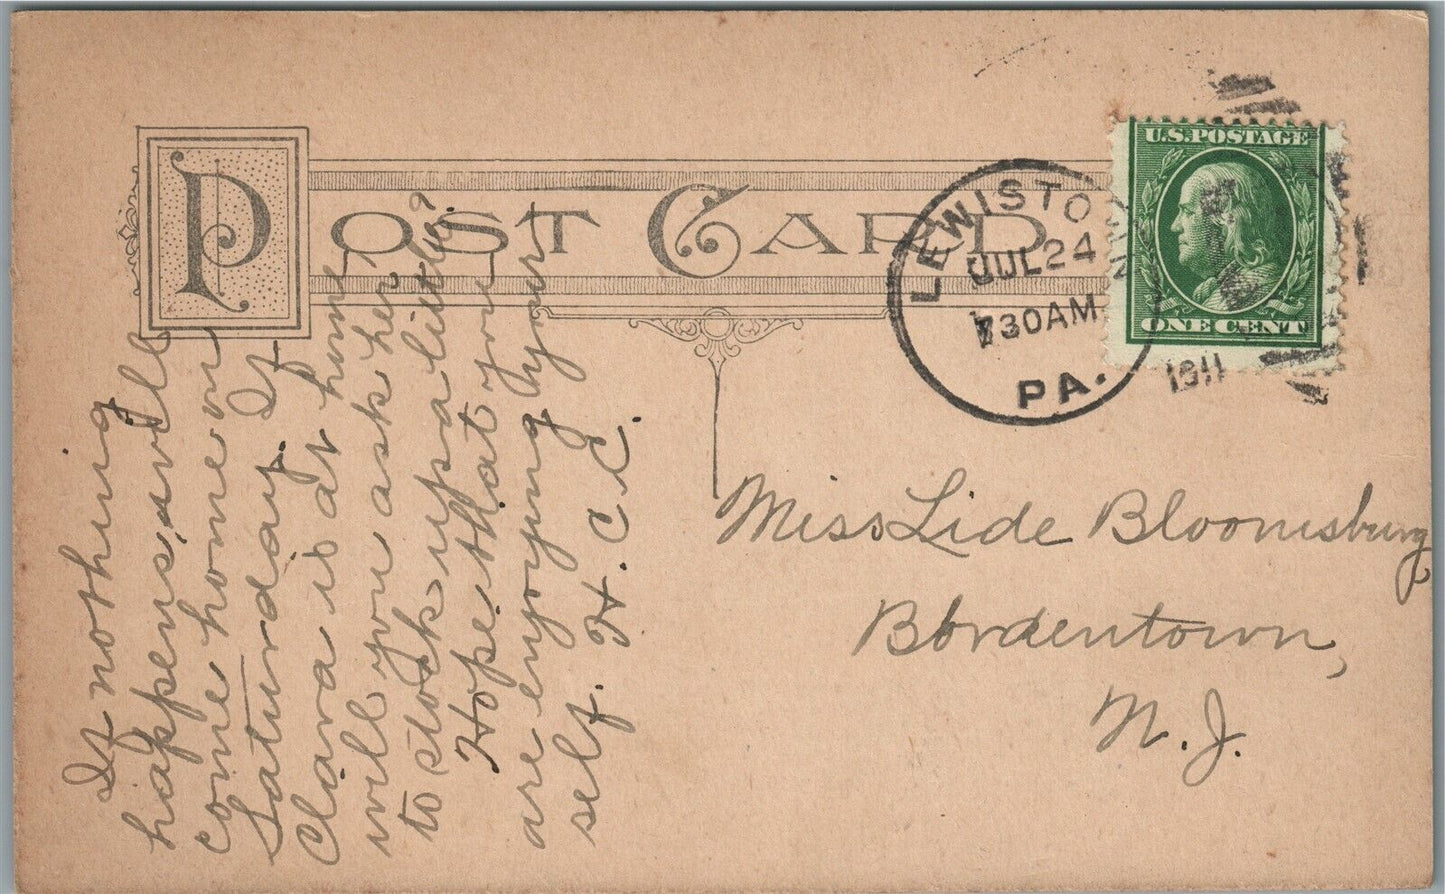 POST CARD
LEWISTOWN
JUL 24
730AM
1911
PA.
U.S. POSTAGE
ONE CENT
If nothing
happens, will
come home on
Saturday. If
Clara is at home
will you ask her
to stock up a little?
Hope that you
are enjoying your
self. H. C. C.
Miss Lide Bloomsburg
Bordentown,
N. J.